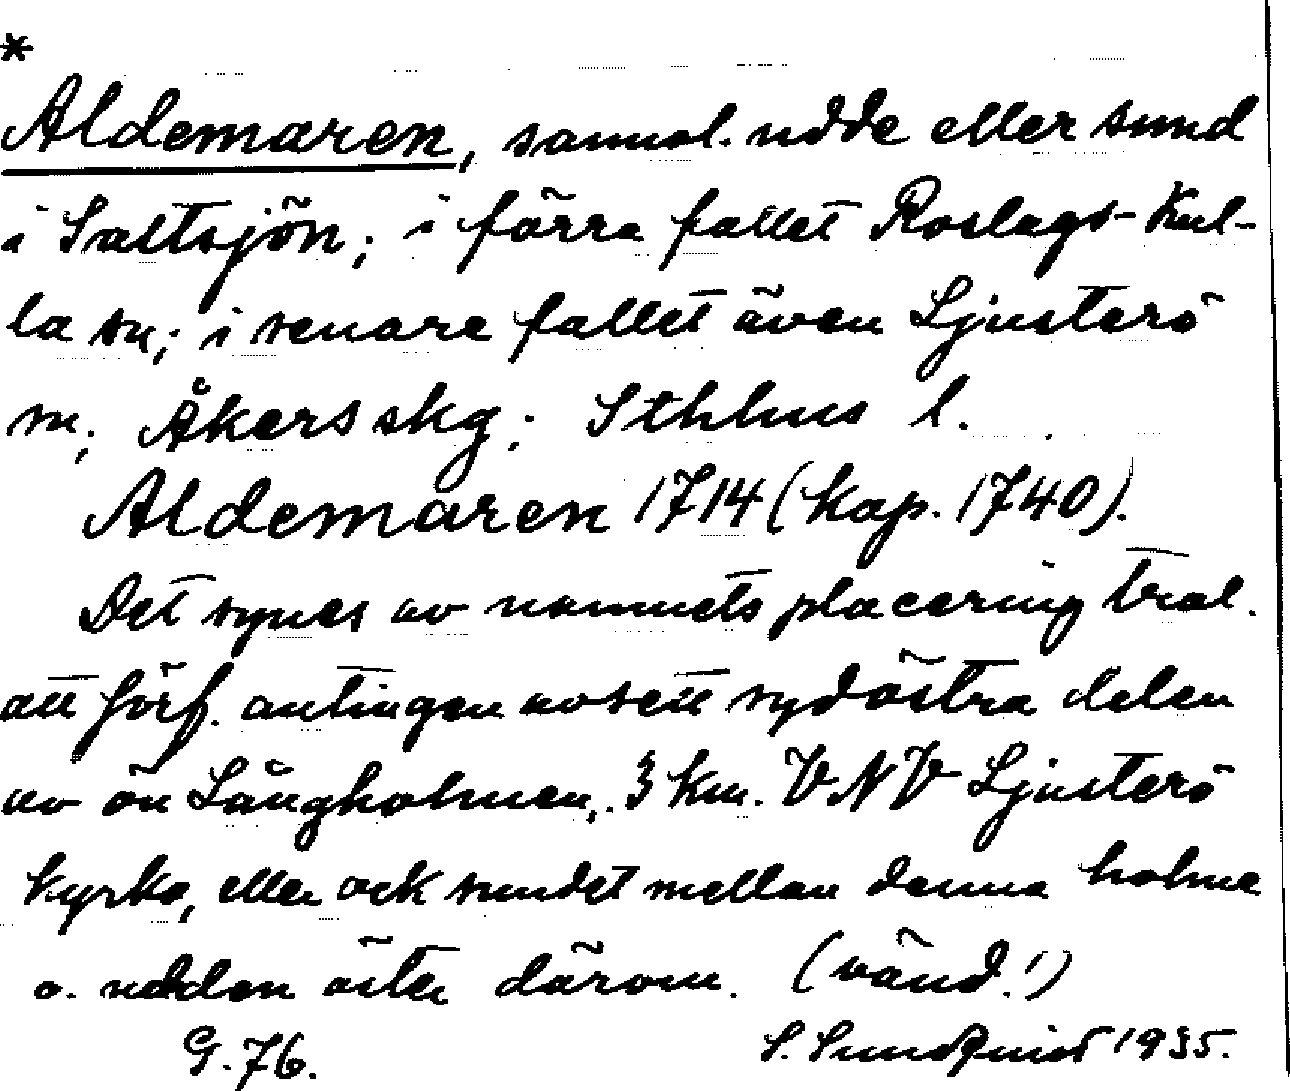 *
Aldemaren, sannol. udde eller sund
i Saltsjön; i förra fallet Roslags-Kul-
la sn; i senare fallet även Ljusterö
sn; Åkers skg; Sthlms l.
Aldemaren 1714 (kap. 1740).
Det synes av namnets placering tral.
att förf. antingen avsett sydöstra delen
av ön Långholmen, 3 km. VNV Ljusterö
kyrka, eller ock sundet mellan denna holme
o. udden öster därom. (vänd!)
G. 76. S. Sundquist 1935.